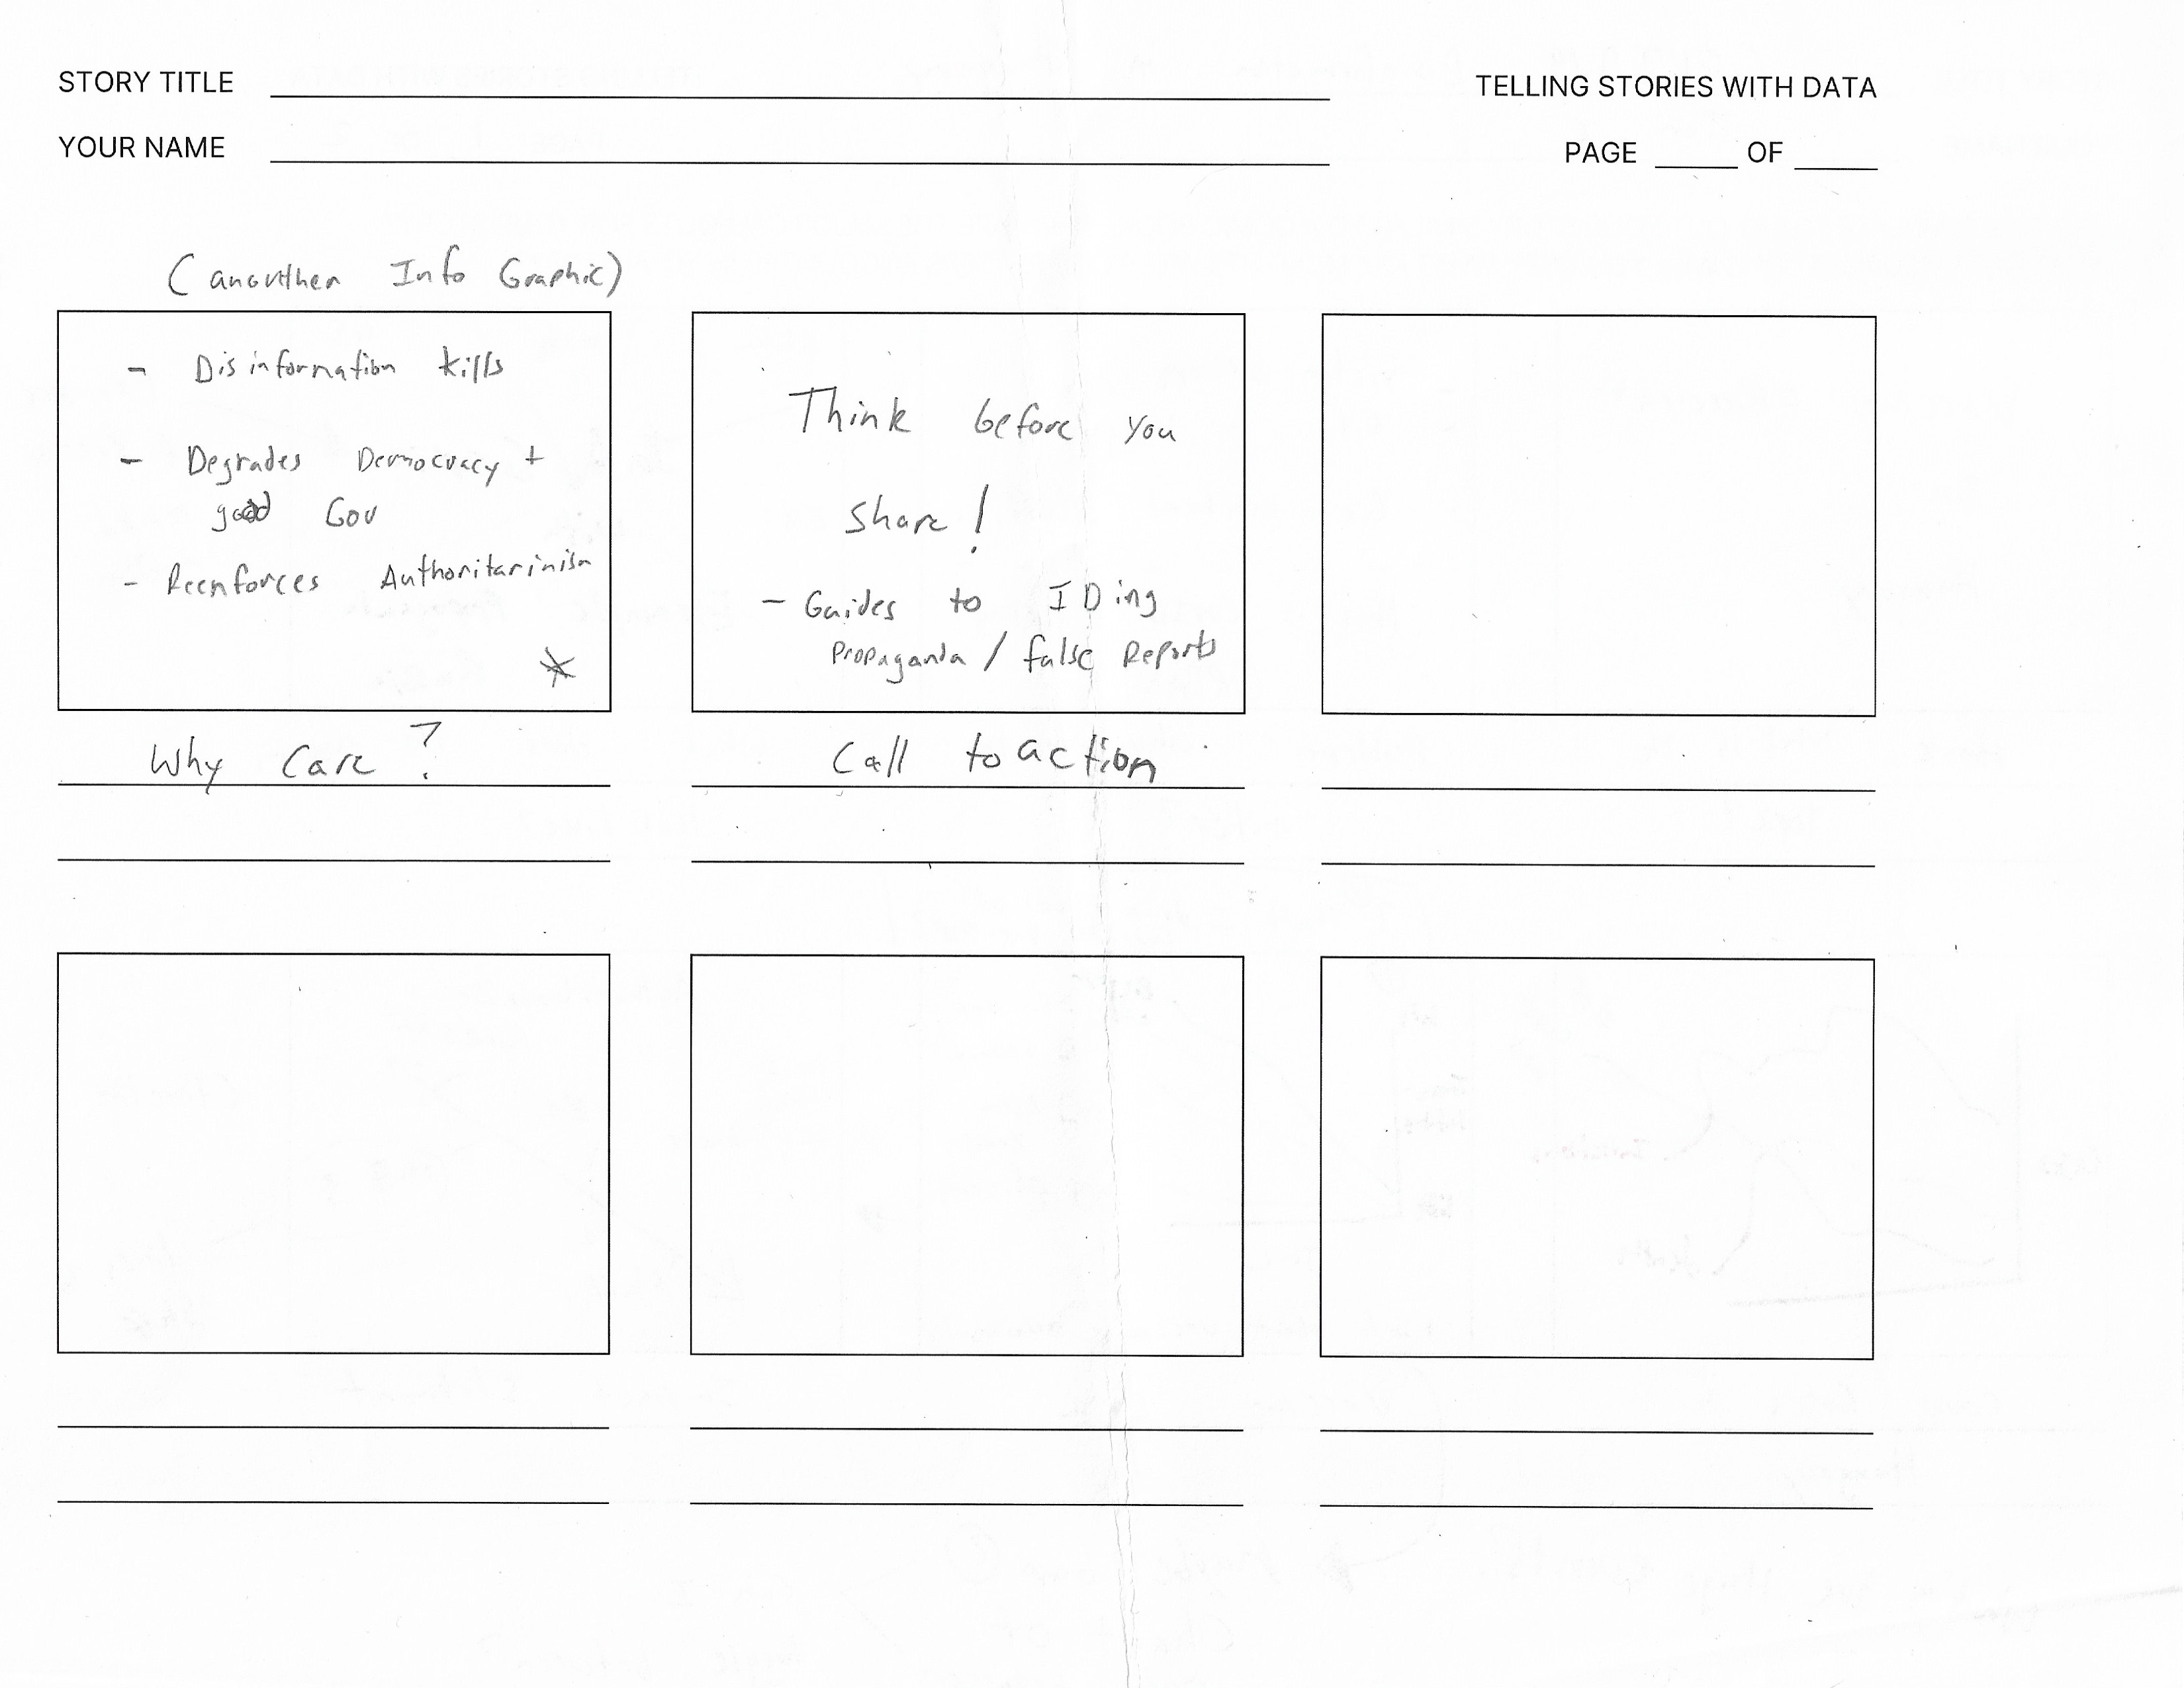 STORY TITLE
TELLING STORIES WITH DATA
YOUR NAME
PAGE OF
(anouther Info Graphic)
- Disinformation kills
- Degrades Democracy +
good Gov
- Reenforces Authoritarinism
*
Why Care?
Think before you
share!
- Guides to IDing
Propaganda / false Reports
Call to action